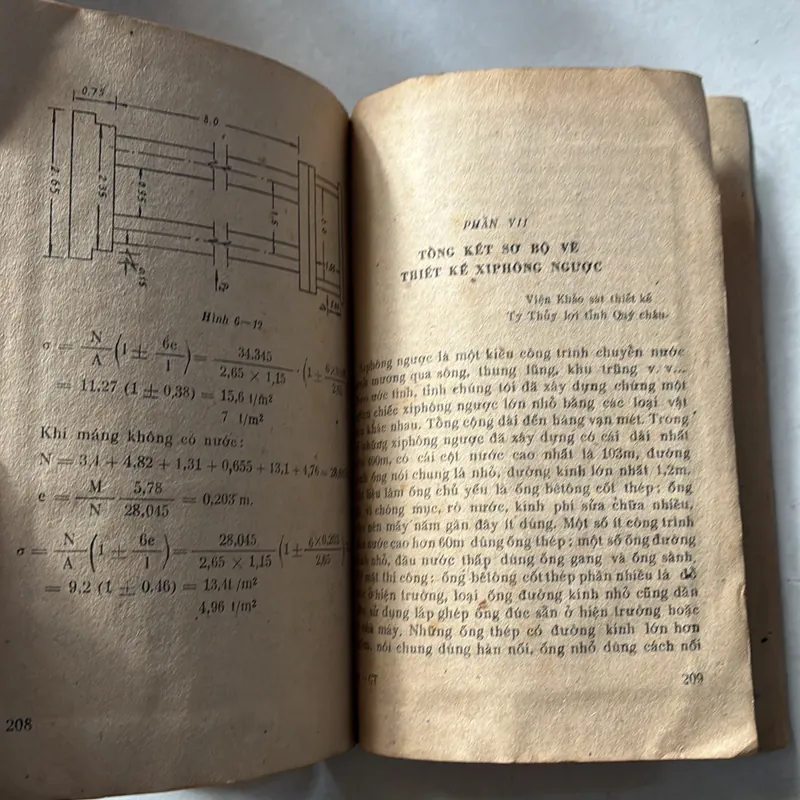 0.75
8.0
2.65
2.35
0.95
1.5
0.15
Hình 6—12
σ = N/A (1 ± 6e/l) = 34,345 / 2,65 × 1,15 · (1 ±
= 11,27 (1 ± 0,38) = 15,6 t/m²
7 t/m²
Khi máng không có nước:
N = 3,4 + 4,82 + 1,31 + 0,655 + 13,1 + 4,76 =
e = M/N 5,78/28,045 = 0,203 m.
σ = N/A (1 ± 6e/l) = 28,045 / 2,65 × 1,15 (1 ± 6×0,203 / 2,65)
= 9,2 (1 ± 0,46) = 13,4t/m²
4,96 t/m²
208
PHẦN VII
TỔNG KẾT SƠ BỘ VỀ
THIẾT KẾ XIPHÔNG NGƯỢC
Viện Khảo sát thiết kế
Ty Thủy lợi tỉnh Quý châu
ngược là một kiểu công trình chuyển nước
mương qua sông, thung lũng, khu trũng v. v...
ước tính, tỉnh chúng tôi đã xây dựng chừng một
chiếc xiphông ngược lớn nhỏ bằng các loại vật
khác nhau. Tổng cộng dài đến hàng vạn mét. Trong
những xiphông ngược đã xây dựng có cái dài nhất
có cái cột nước cao nhất là 103m, đường
ống nói chung là nhỏ, đường kính lớn nhất 1,2m.
liệu làm ống chủ yếu là ống bêtông cốt thép; ống
vì chóng mục, rò nước, kinh phí sửa chữa nhiều,
nên mấy năm gần đây ít dùng. Một số ít công trình
nước cao hơn 60m dùng ống thép; một số ống đường
nhỏ, đầu nước thấp dùng ống gang và ống sành,
mặt thi công: ống bêtông cốt thép phần nhiều là đổ
ở hiện trường, loại ống đường kính nhỏ cũng dần
sử dụng lắp ghép ống đúc sẵn ở hiện trường hoặc
nhà máy. Những ống thép có đường kính lớn hơn
nói chung dùng hàn nối, ống nhỏ dùng cách nối
- CT
209